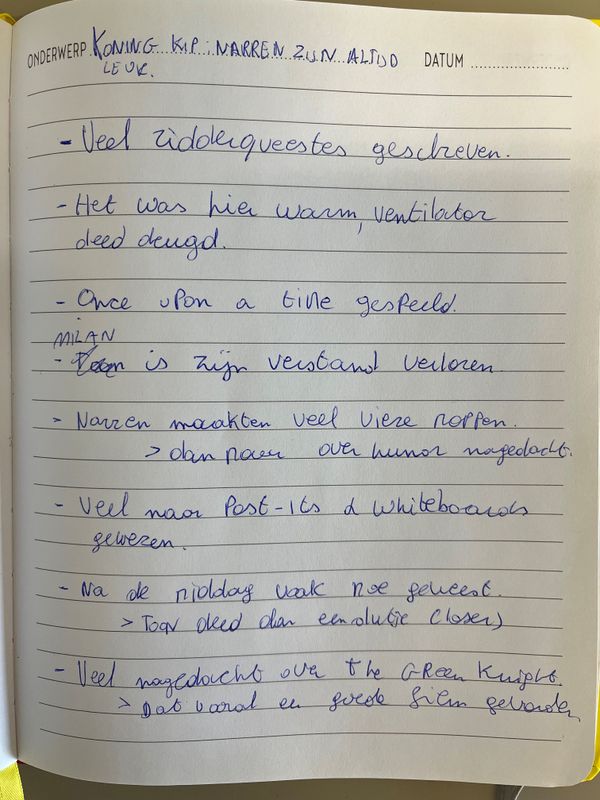 ONDERWERP KONING KIP: NARREN ZIJN ALTIJD DATUM
LEUK.
- Veel ridderqueestes geschreven.
- Het was hier warm, ventilator
deed deugd.
- Once upon a time gespeeld.
MILAN
- is zijn verstand verloren
- Narren maakten veel vieze moppen.
> dan maar over humor nagedacht.
- Veel naar Post-its & Whiteboards
gewezen.
- Na de middag vaak moe geweest.
> Toon deed dan een dutje (loser)
- Veel nagedacht over The GREEN Knight.
> Dat vooral een goede film gevonden